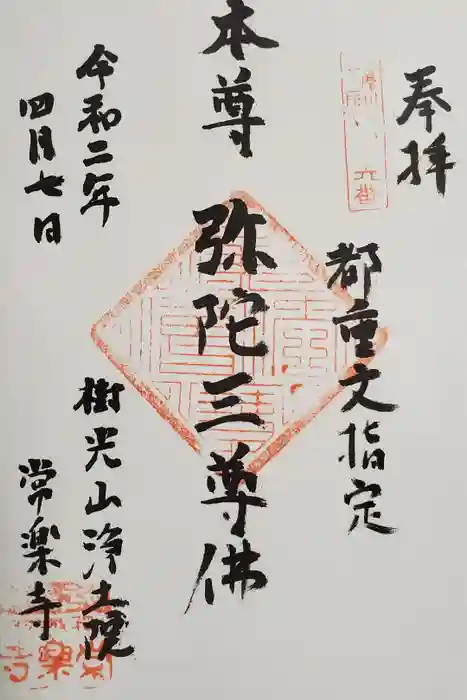 奉拝
都重文指定
本尊
弥陀三尊佛
令和二年
四月七日
樹光山浄土院
常楽寺